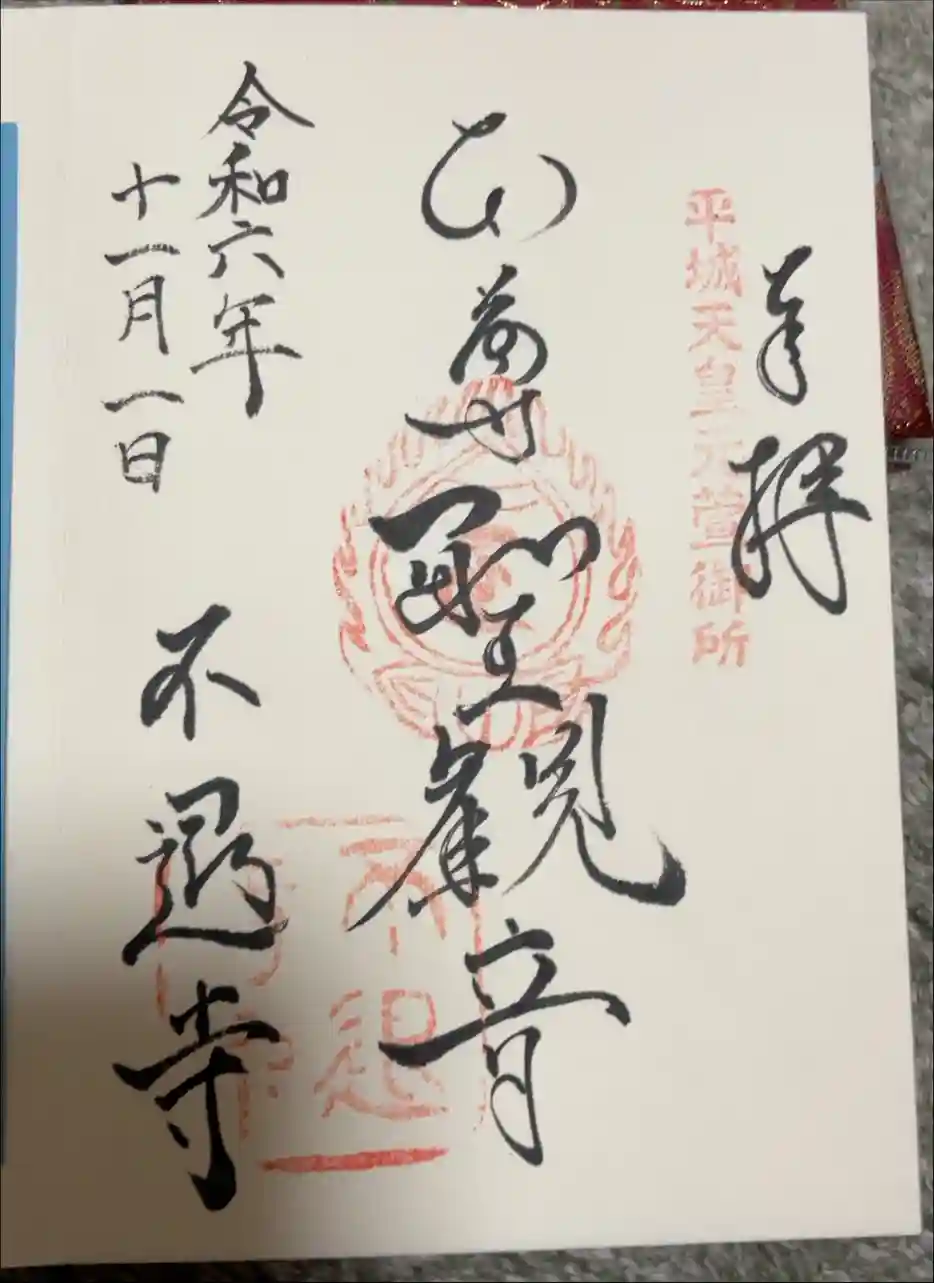 奉拝
平城天皇元萱御所
本尊聖観音
令和六年
十一月一日
不退寺